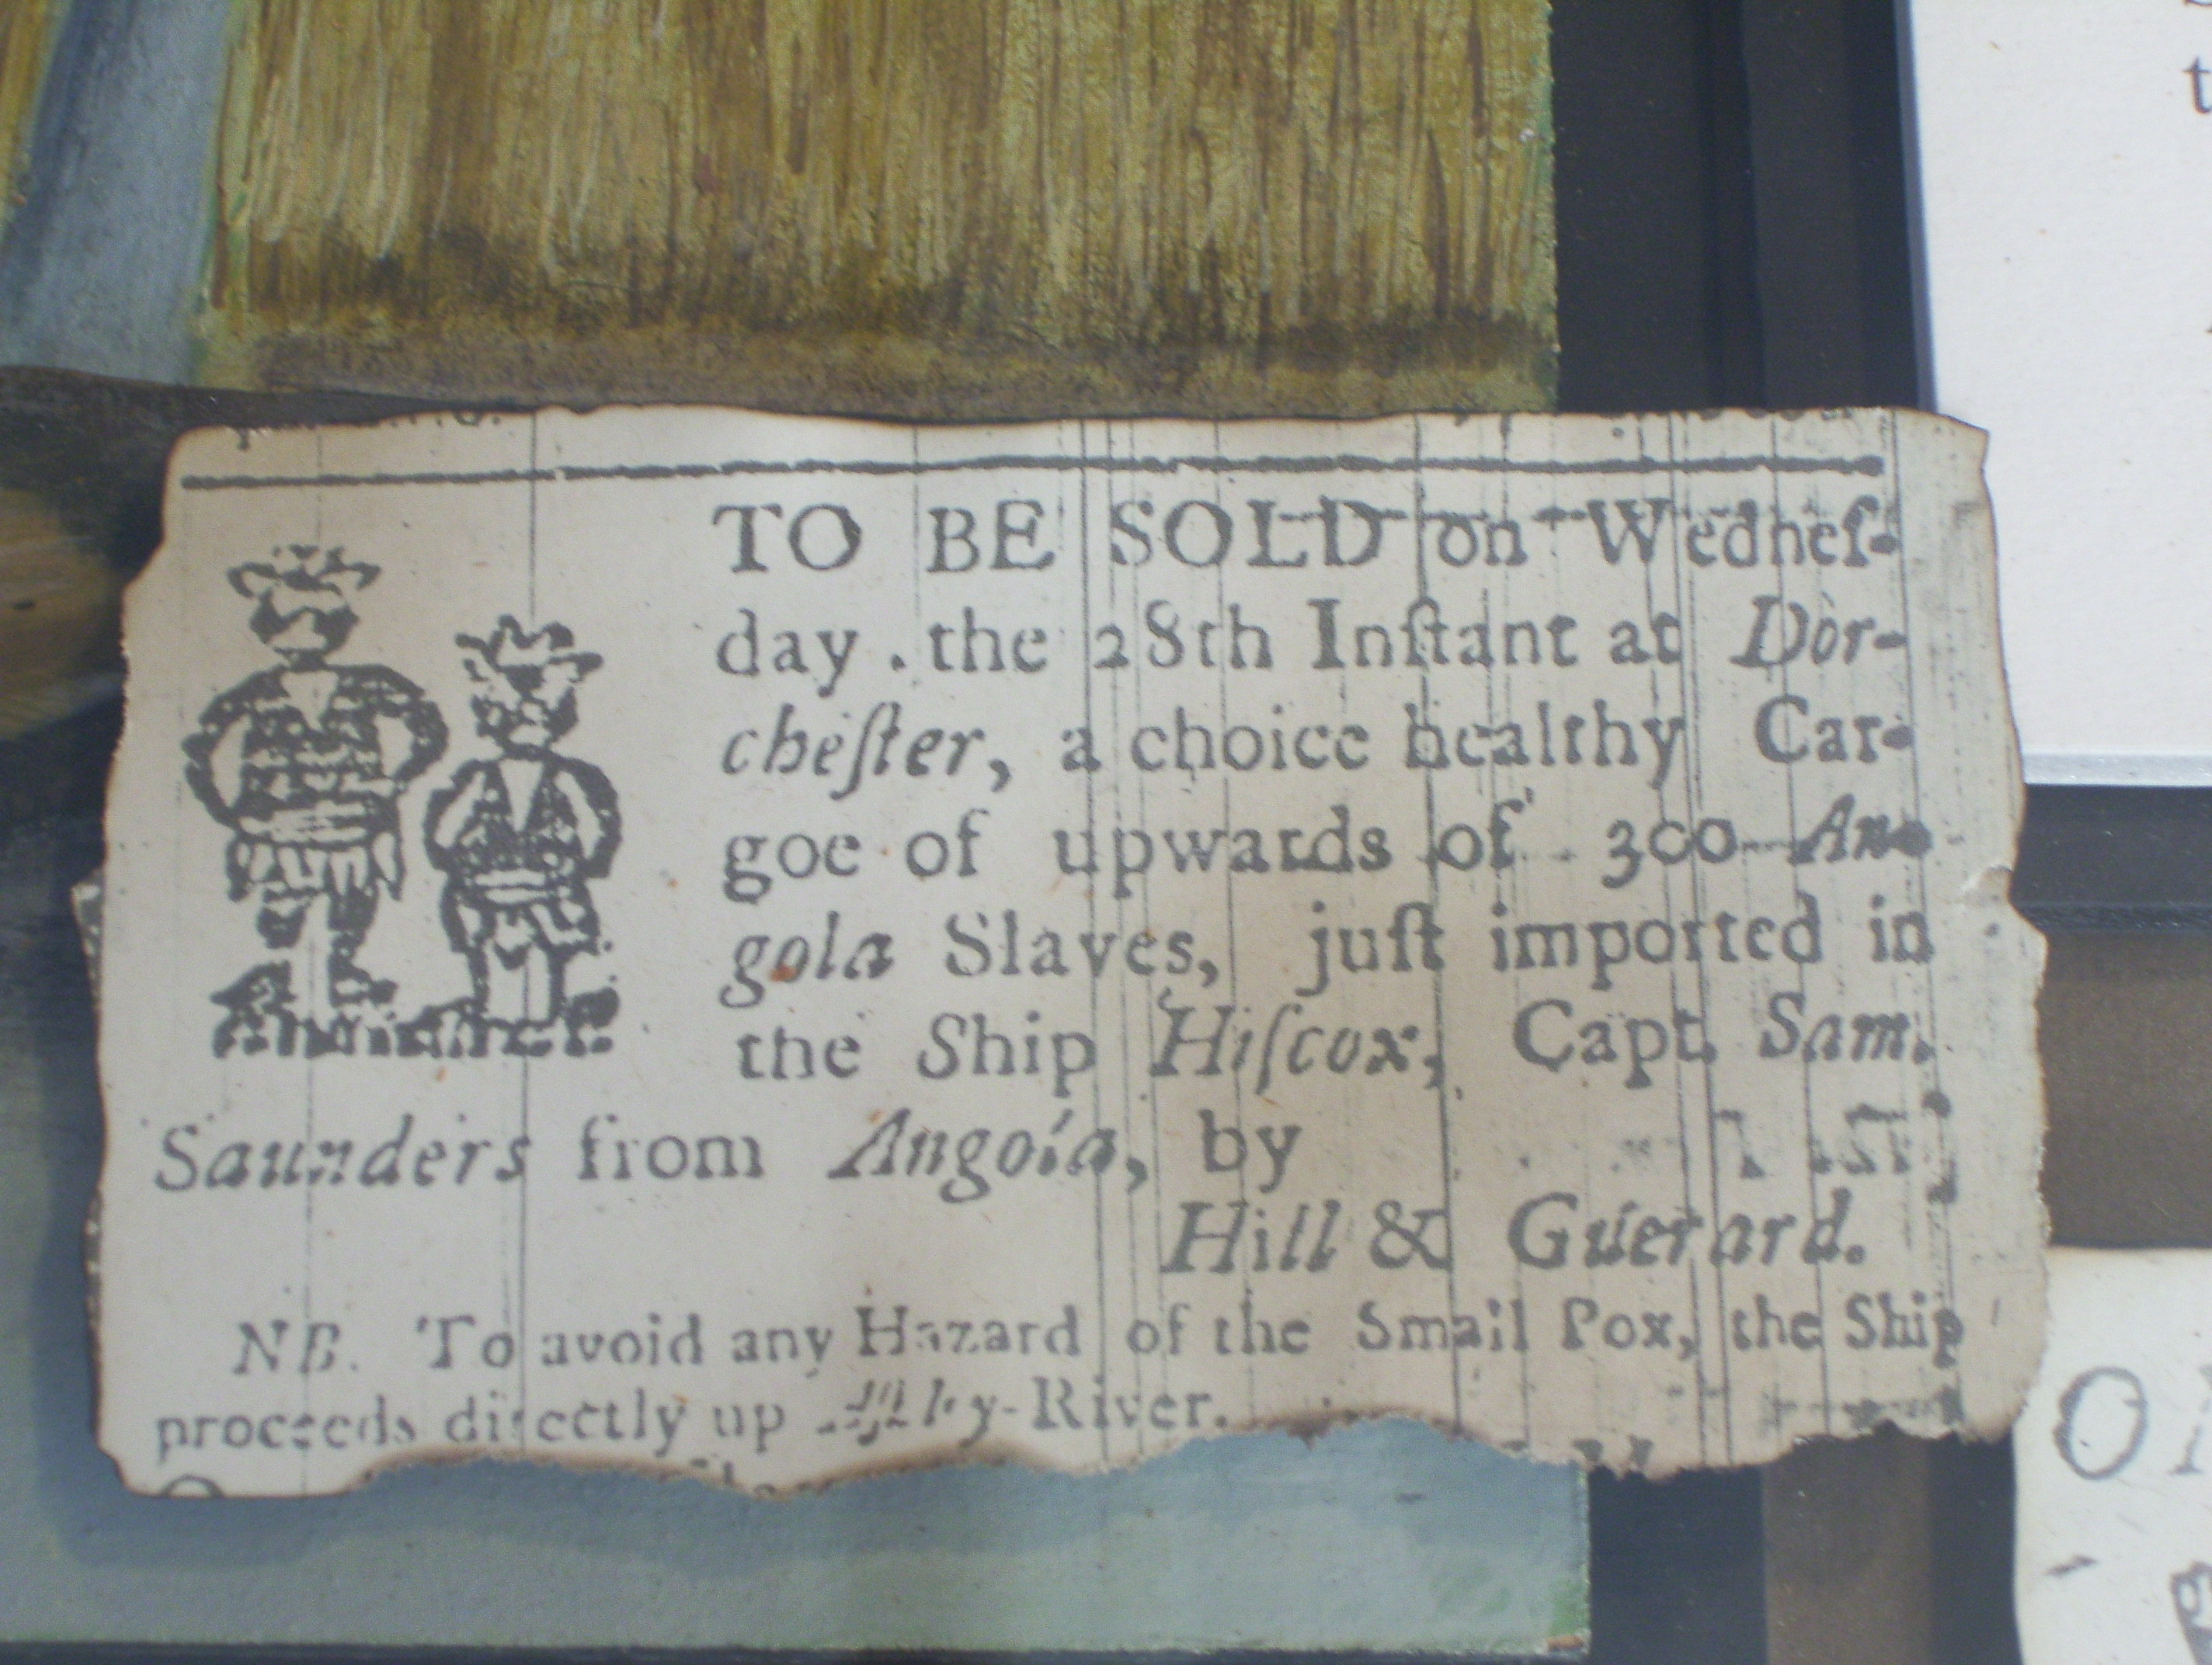 TO BE SOLD on Wedneſ-
day . the 28th Inſtant at Dor-
cheſter, a choice healthy Car-
goe of upwards of 300 An-
gola Slaves, juſt imported in
the Ship Hiſcox, Capt. Sam.
Saunders from Angola, by
Hill & Guerard.
NB. To avoid any Hazard of the Small Pox, the Ship
proceeds directly up -River.